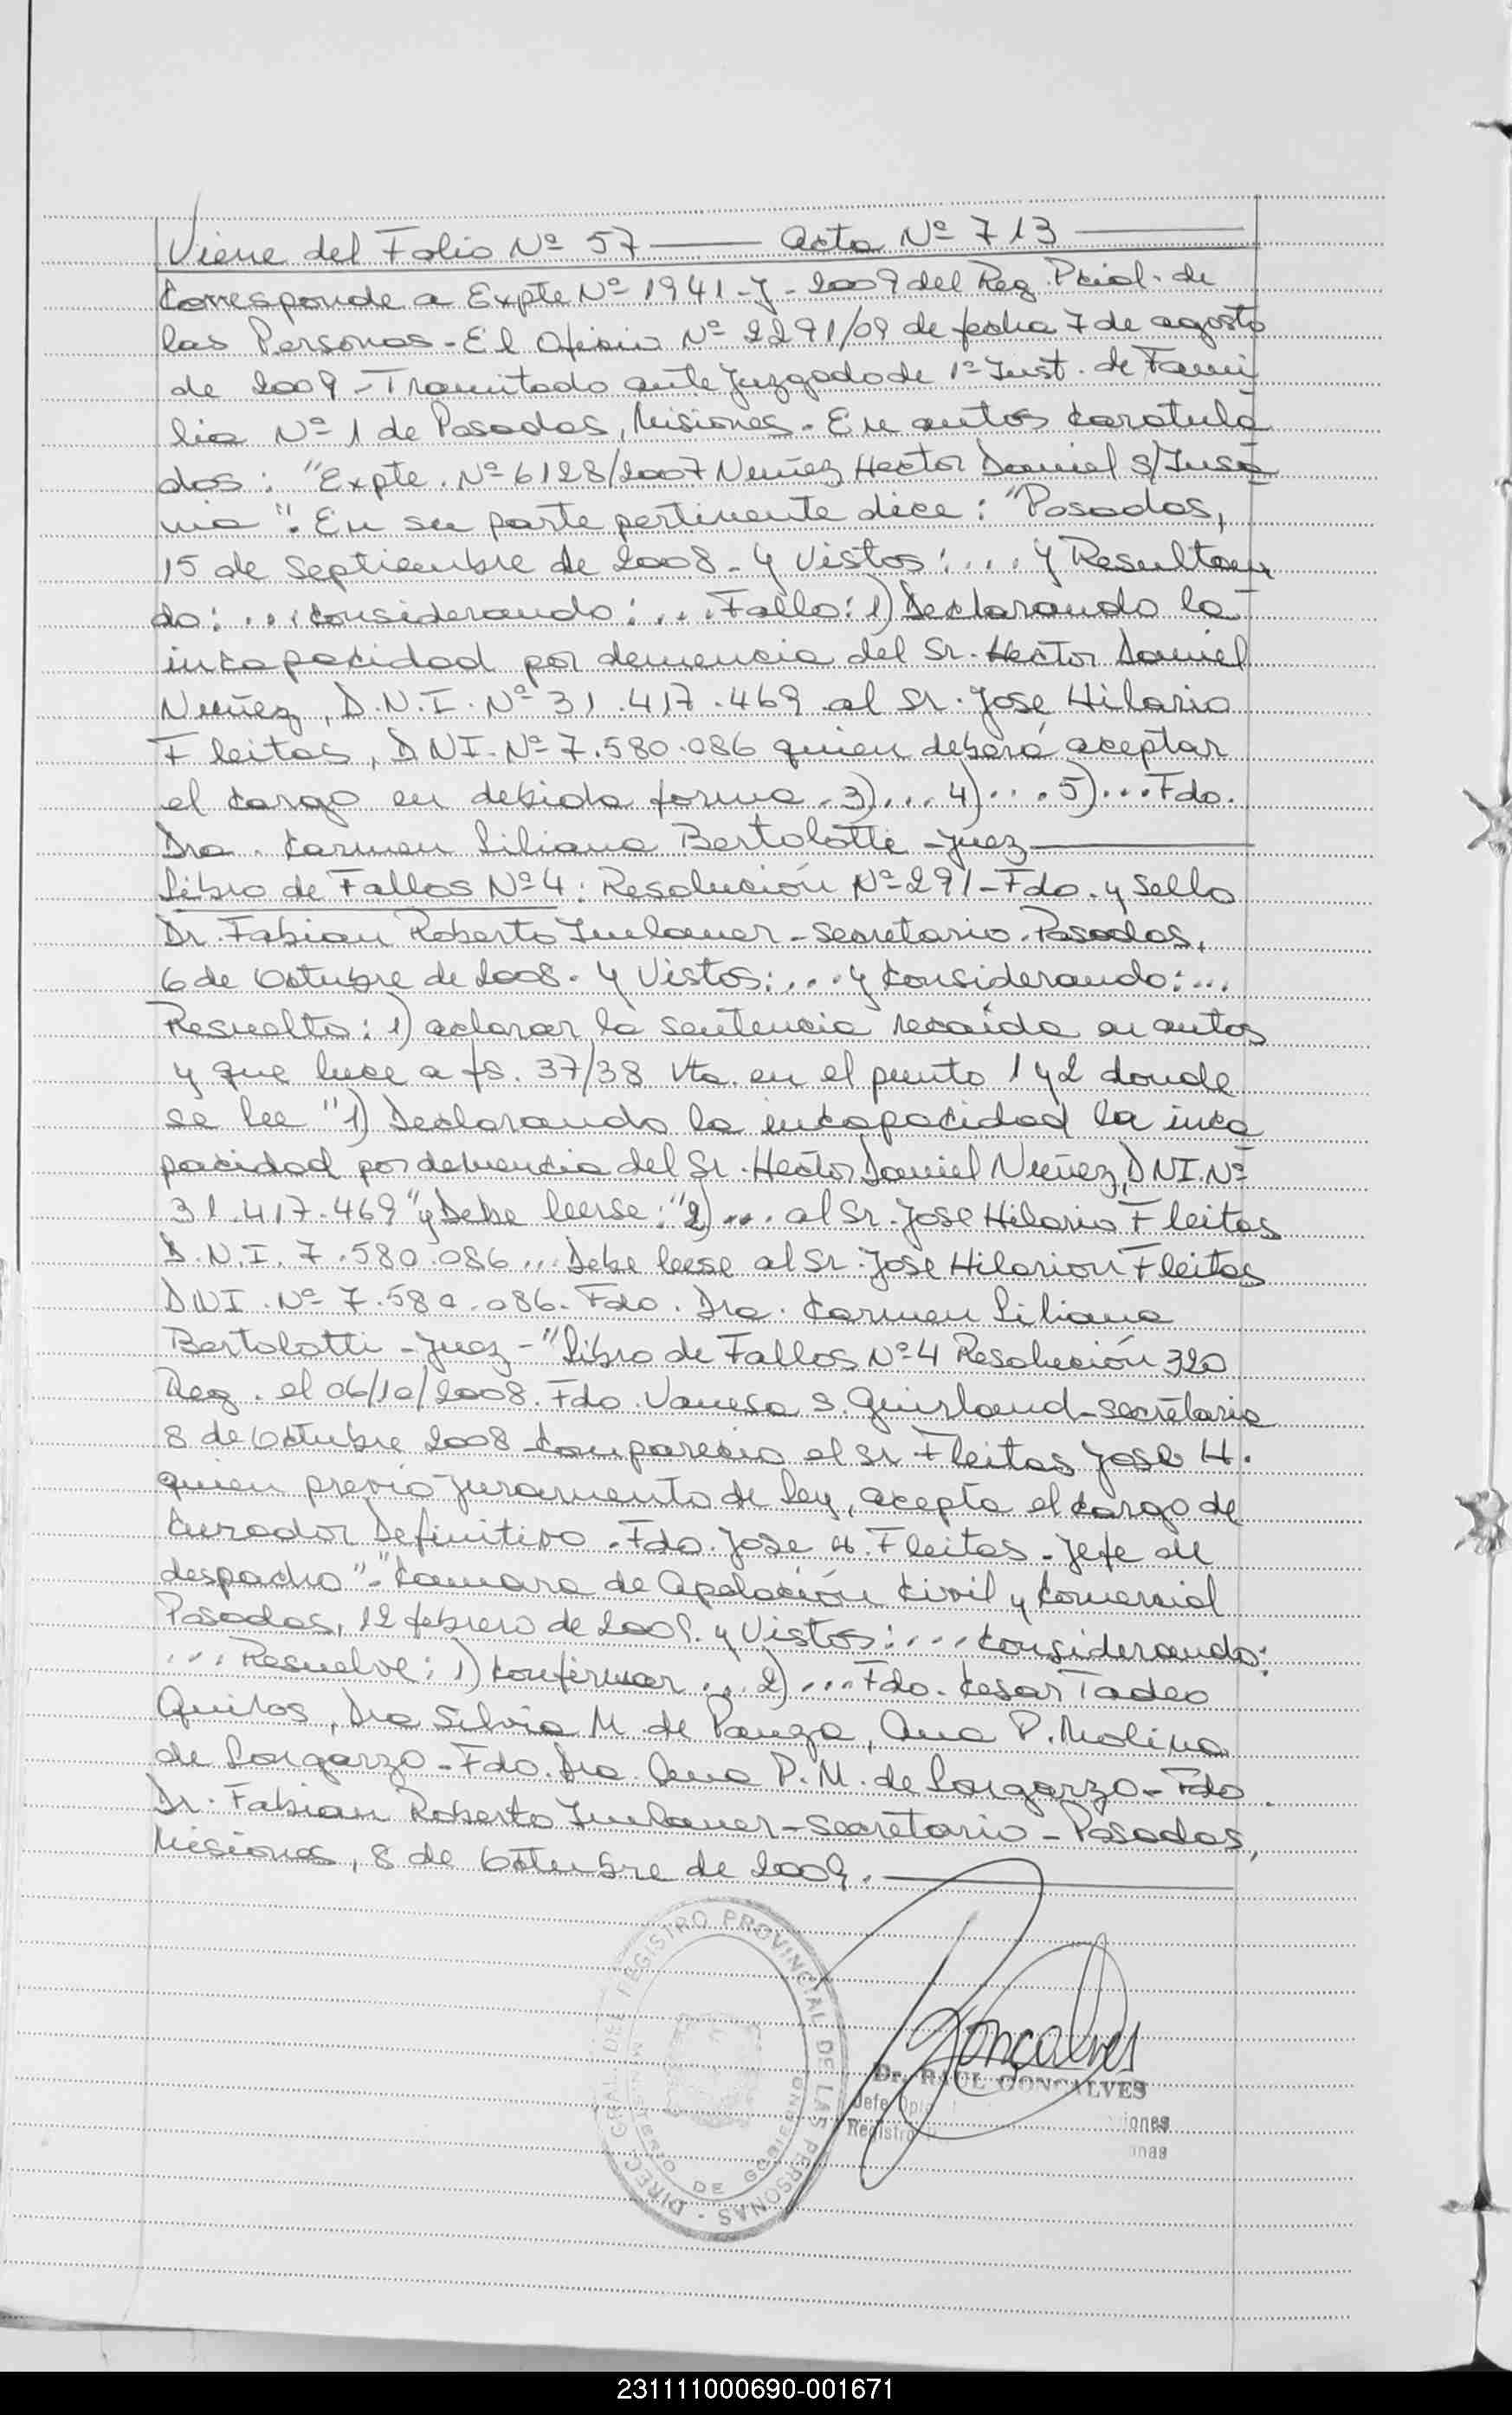 Viene del Folio Nº 57 —— Acta Nº 713 ——
Corresponde a Expte Nº 1941-J-2009 del Reg. Pcial. de
las Personas - El Oficio Nº 2291/09 de fecha 7 de agosto
de 2009 - Tramitado ante Juzgado de 1º Inst. de Fami
lia Nº 1 de Posadas, Misiones - En autos caratula
dos: "Expte. Nº 6128/2007 Nuñez Hector Daniel S/Insa
nia". En su parte pertinente dice: "Posadas,
15 de Septiembre de 2008 - y Vistos: ... y Resultan
do: ... considerando: ... Fallo: 1) Declarando la
incapacidad por demencia del Sr. Hector Daniel
Nuñez, D.N.I. Nº 31.417.469 al Sr. Jose Hilario
Fleitas, DNI. Nº 7.580.086 quien deberá aceptar
el cargo en debida forma. 3)... 4)... 5)... Fdo.
Dra. Carmen Liliana Bertolotti - Juez ——
Libro de Fallos Nº 4: Resolución Nº 291 - Fdo. y Sello
Dr. Fabian Roberto - Secretario. Posadas,
6 de Octubre de 2008. y Vistos: ... y considerando: ...
Resuelto: 1) aclarar la sentencia recaída en autos
y que luce a fs. 37/38 vta. en el punto 1 y 2 donde
se lee "1) Declarando la incapacidad la inca
pacidad por demencia del Sr. Hector Daniel Nuñez, DNI. Nº
31.417.469" y Debe leerse: "2)... al Sr. Jose Hilario Fleitas
D.N.I. 7.580.086... Debe leese al Sr. Jose Hilarion Fleitas
DNI. Nº 7.580.086. Fdo. Dra. Carmen Liliana
Bertolotti - Juez - "Libro de Fallos Nº 4 Resolución 320
Reg. el 06/10/2008. Fdo. Vanesa S. - Secretaria
8 de Octubre 2008 Comparecio el Sr Fleitas Jose H.
quien previo juramento de Ley, acepta el cargo de
Curador Definitivo. Fdo. Jose H. Fleitas - Jefe de
despacho" - "Camara de Apelación Civil y Comercial
Posadas, 12 febrero de 2009. y Vistos: ... Considerando:
... Resuelve: 1) Confirmar ... 2) ... Fdo. Cesar Tadeo
Quiros, Dra Silvia M. de Panza, Ana P. Molina
de Longarzo - Fdo. Dra. Ana P. M. de Longarzo - Fdo.
Dr. Fabian Roberto - Secretario - Posadas,
Misiones, 8 de Octubre de 2009. ——
DIREC. GRAL. DEL REGISTRO PROVINCIAL DE LAS PERSONAS -
MINISTERIO DE GOBIERNO
Goncalves
Dr. RAUL GONCALVES
Jefe iones
Registro onas
231111000690-001671